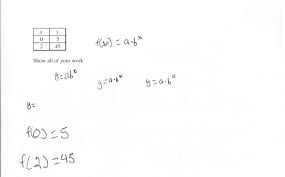 x y
0 5
2 45
f(x) = a·bˣ
Show all of your work.
y=abˣ y=a·bˣ y=a·b⁰
y=
f(0)=5
f(2)=45